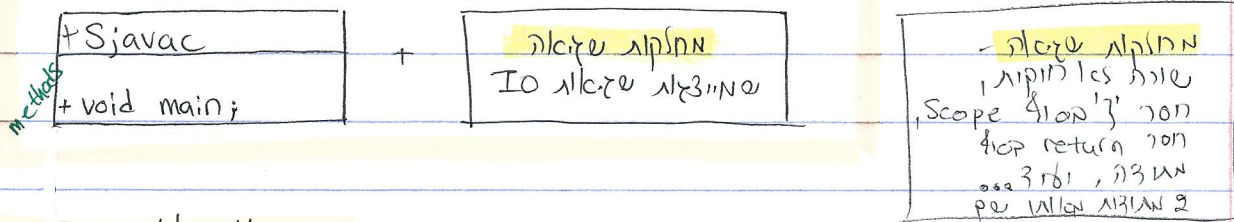 + Sjavac
methods
+ void main;
+
מחלקות שגיאה
שמייצגות שגיאות IO
מחלקות שגיאה -
שורה לא חוקית,
חסר }' בסוף Scope,
חסר return בסוף
מתודה, ועוד...
2 מתודות מאותו שם